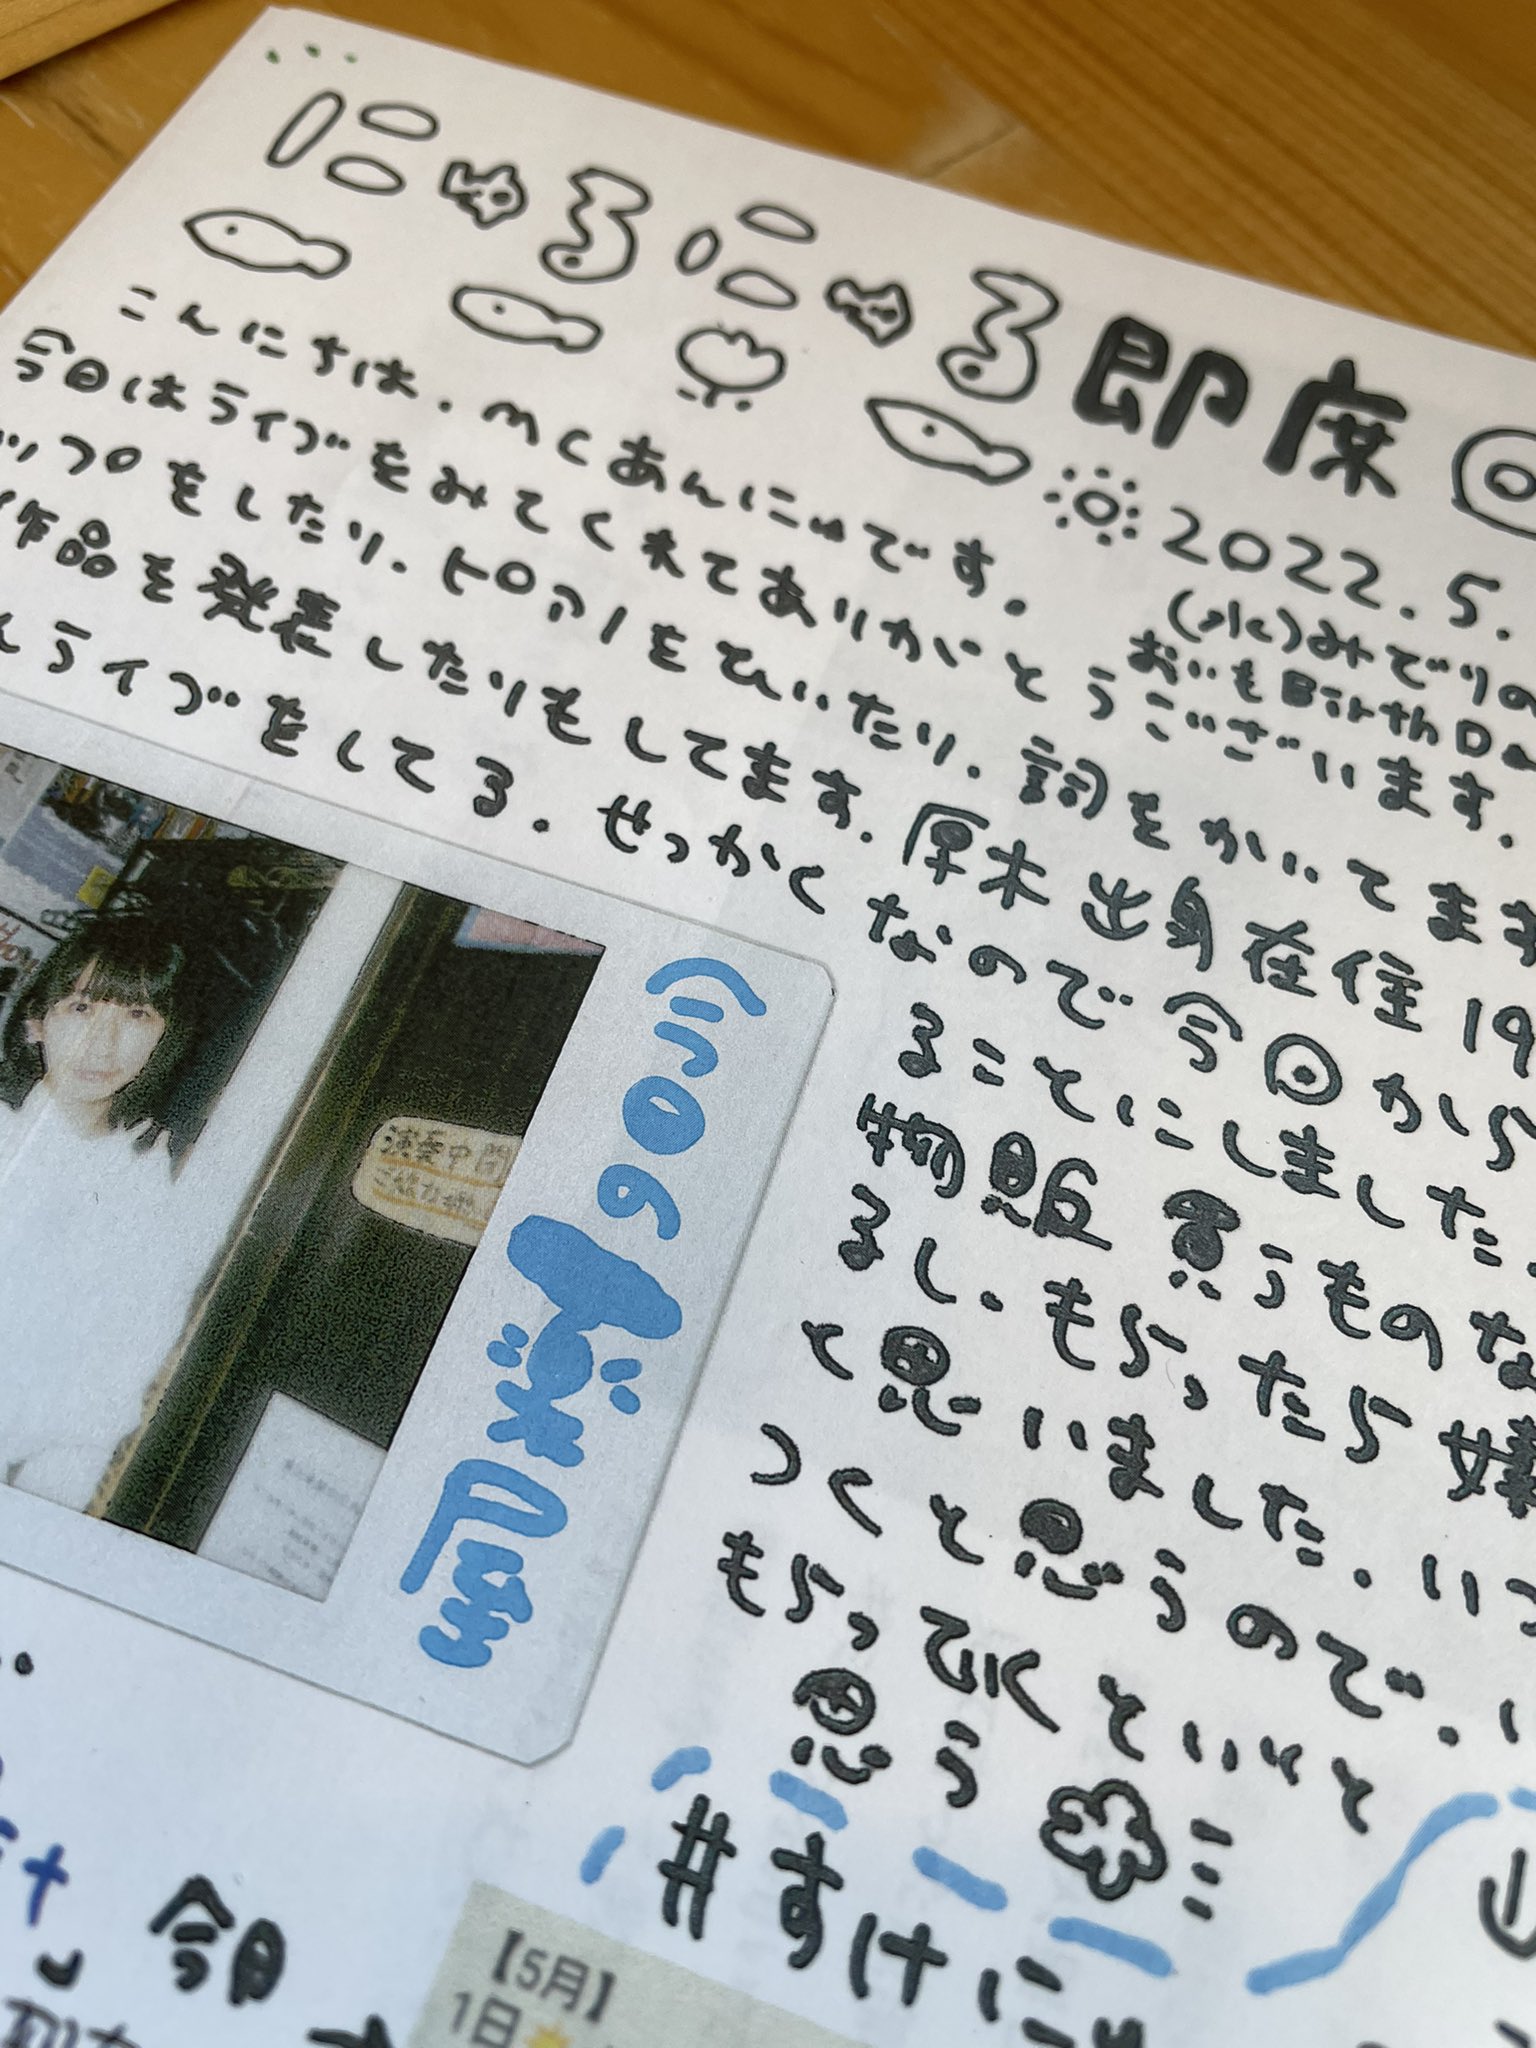 にゅるにゅる即席
2022.5.
(水)みどりの
おいもBirthDa
こんにちは。MCあんにゅです。
今日はライブをみてくれてありがとうございます。
ップをしたり、トロアノをひいたり、詞をかいてます
作品を発表したりもしてます。厚木出身在住19
ライブをしてる。せっかくなので今回から
ることにしました。
物販買うものな
るし、もらったら嬉
と思いました。いつ
つくと思うので、い
もらってくといいと
思う
#すけに
の部屋
演奏中
今月
【5月】
1日